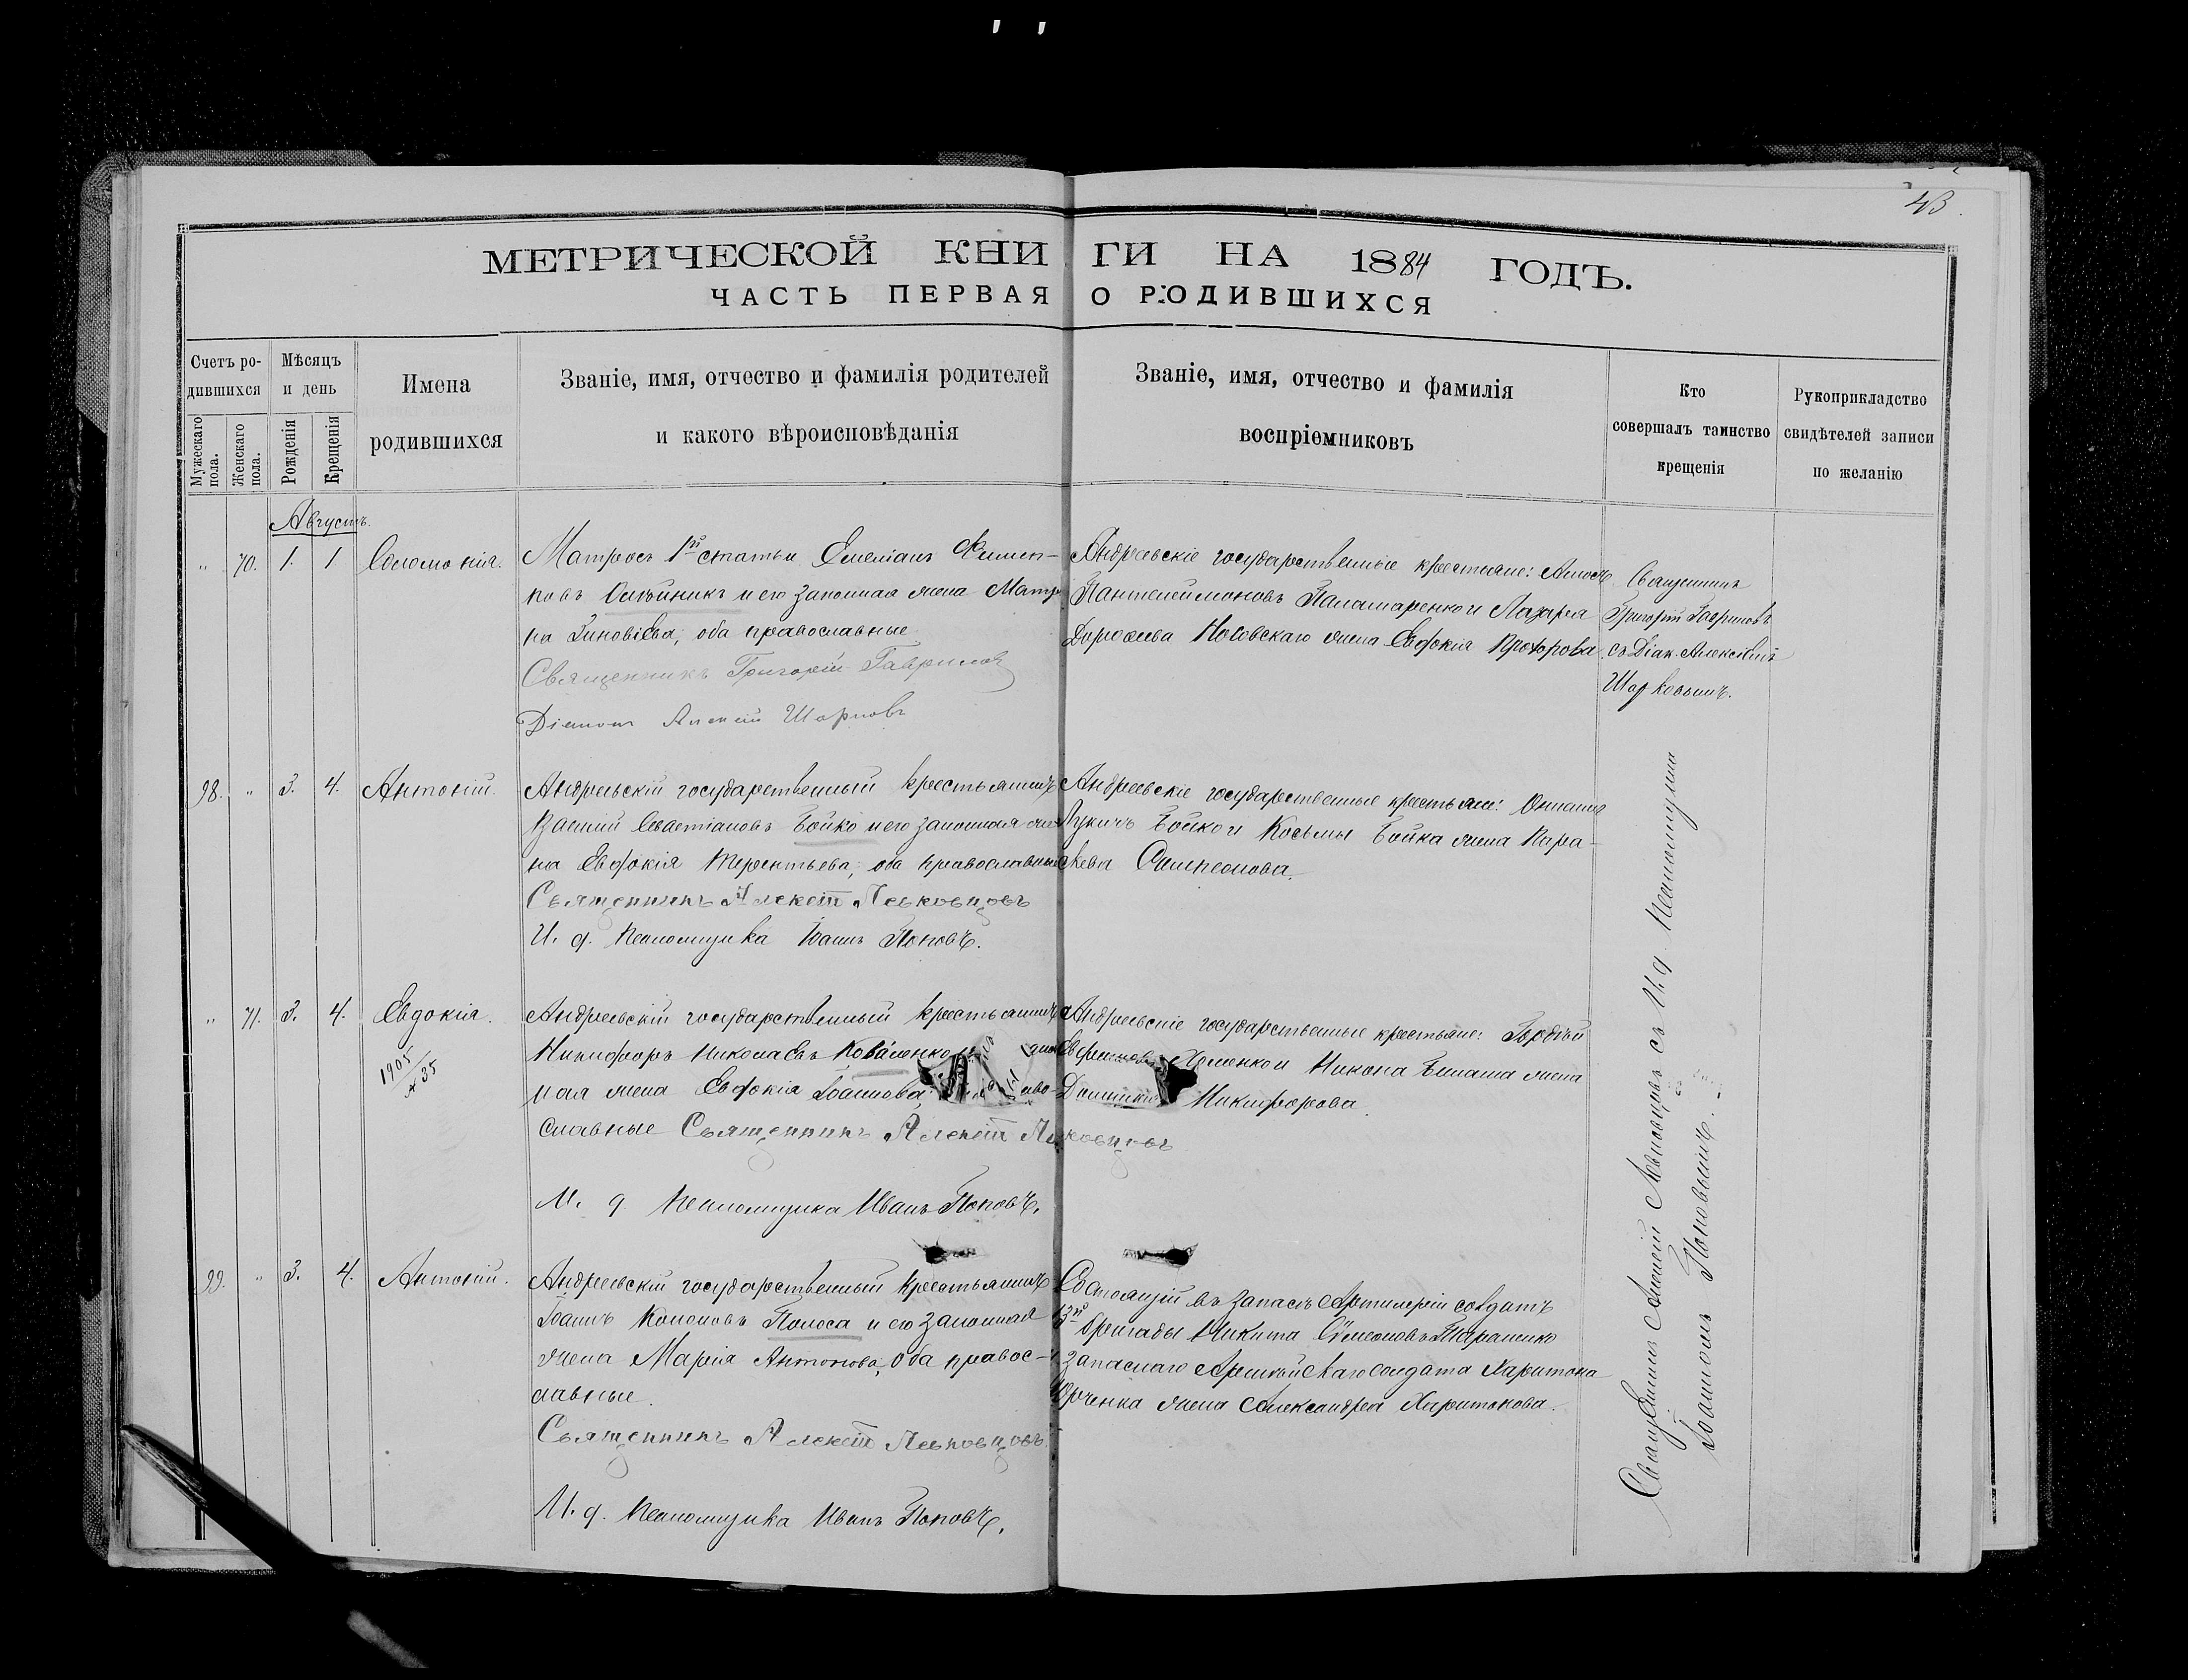 43.
МЕТРИЧЕСКОЙ КНИГИ НА 1884 ГОДЪ.
ЧАСТЬ ПЕРВАЯ О РОДИВШИХСЯ
Счетъ ро-
дившихся
Мужескаго пола.
Женскаго пола.
Мѣсяцъ
и день
Рожденія
Крещенія
Имена
родившихся
Званіе, имя, отчество и фамилія родителей
и какого вѣроисповѣданія
Званіе, имя, отчество и фамилія
воспріемниковъ
Кто
совершалъ таинство
крещенія
Рукоприкладство
свидѣтелей записи
по желанію
Августъ.
" 70. 1. 1 Соломонія.
Матросъ 1й статьи Емеліанъ Филип-
повъ Олѣйникъ и его законная жена Матро
на Зиновіева, оба православные
Священникъ Григорій Гавриловъ
Діаконъ Алексій Шарковъ
Андреевскіе государственные крестьяне:
Пантелеймоновъ Паламаренко и Лазаря
Дороѳеева жена Евдокія Прохорова.
Священникъ
Григорій Гавриловъ
съ Діак. Алексіемъ
Шарковымъ.
98. " 3. 4. Антоній.
Андреевскій государственный крестьянинъ
Василій Севастіановъ Бойко и его законная же
на Евдокія Терентьева, оба православные
Священникъ Алексій Левковцовъ
И. д. псаломщика Іоаннъ Поповъ.
Андреевскіе государственные крестьяне:
Лукичъ Бойко и Косьмы Бойка жена Пара-
скева Симеонова.
" 71. 3. 4. Евдокія.
1905
35
Андреевскій государственный крестьянинъ
Никифоръ Николаевъ Коваленко
ная жена Евдокія Іоаннова,
славные Священникъ Алексій Левковцовъ
И. д. псаломщика Иванъ Поповъ.
Андреевскіе государственные крестьяне: Гордѣй
и Никона жена
Никифорова.
99. " 3. 4. Антоній.
Андреевскій государственный крестьянинъ
Іоаннъ Кононовъ Полоса и его законная
жена Марія Антонова, оба правос-
лавные.
Священникъ Алексій Левковцовъ.
И. д. псаломщика Иванъ Поповъ.
Состоящій въ запасѣ Артилеріи солдатъ
бригады Никита Симеоновъ Тараненко
запаснаго Армейскаго солдата Харитона
Юрченка жена Александра Харитонова.
Священникъ Алексій Левковцовъ съ И. д. псаломщика
Іоанномъ Поповымъ.